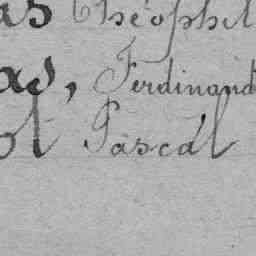 as Théophil
as, Ferdinand
ot Pascal